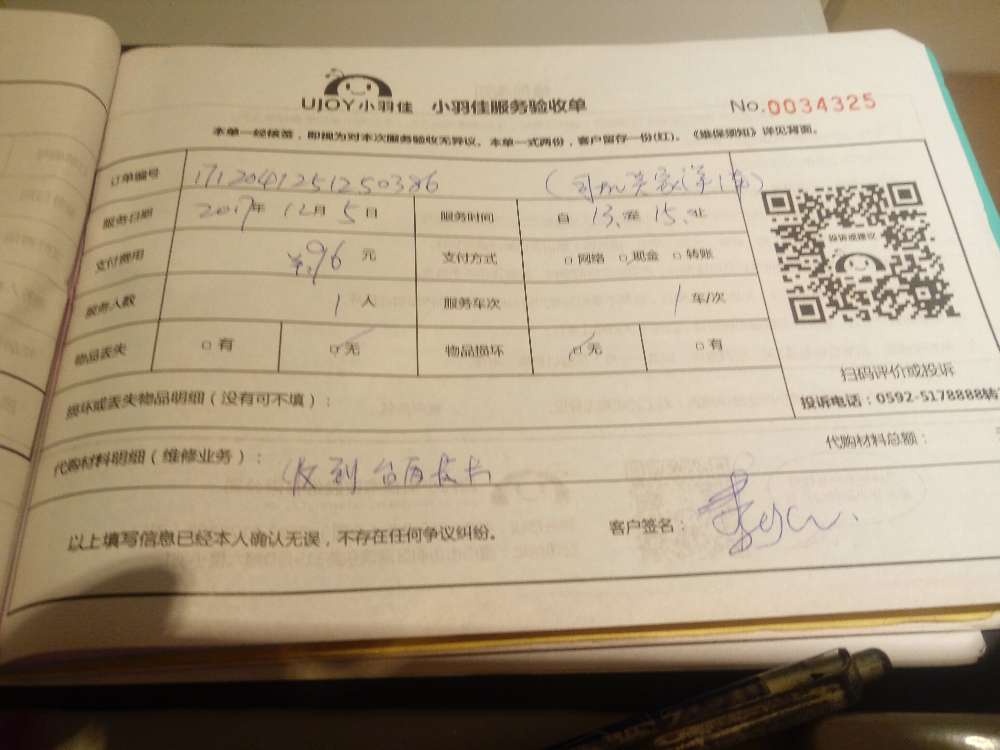 UJOY小羽佳 小羽佳服务验收单 No.0034325
本单一经核签，即视为对本次服务验收无异议。本单一式两份，客户留存一份(红)。《维保须知》详见背面。
订单编号 1712041251250386
服务日期 2017年 12月 5日 服务时间 自 13:至 15:止
支付费用 ¥96 元 支付方式 □网络 □现金 □转账
服务人数 1 人 服务车次 1 车/次
物品丢失 □有 □无 物品损坏 □无 □有
投诉或建议
扫码评价或投诉
投诉电话：0592-5178888转
损坏或丢失物品明细（没有可不填）：
代购材料总额：
代购材料明细（维修业务）：
收到
以上填写信息已经本人确认无误，不存在任何争议纠纷。 客户签名：